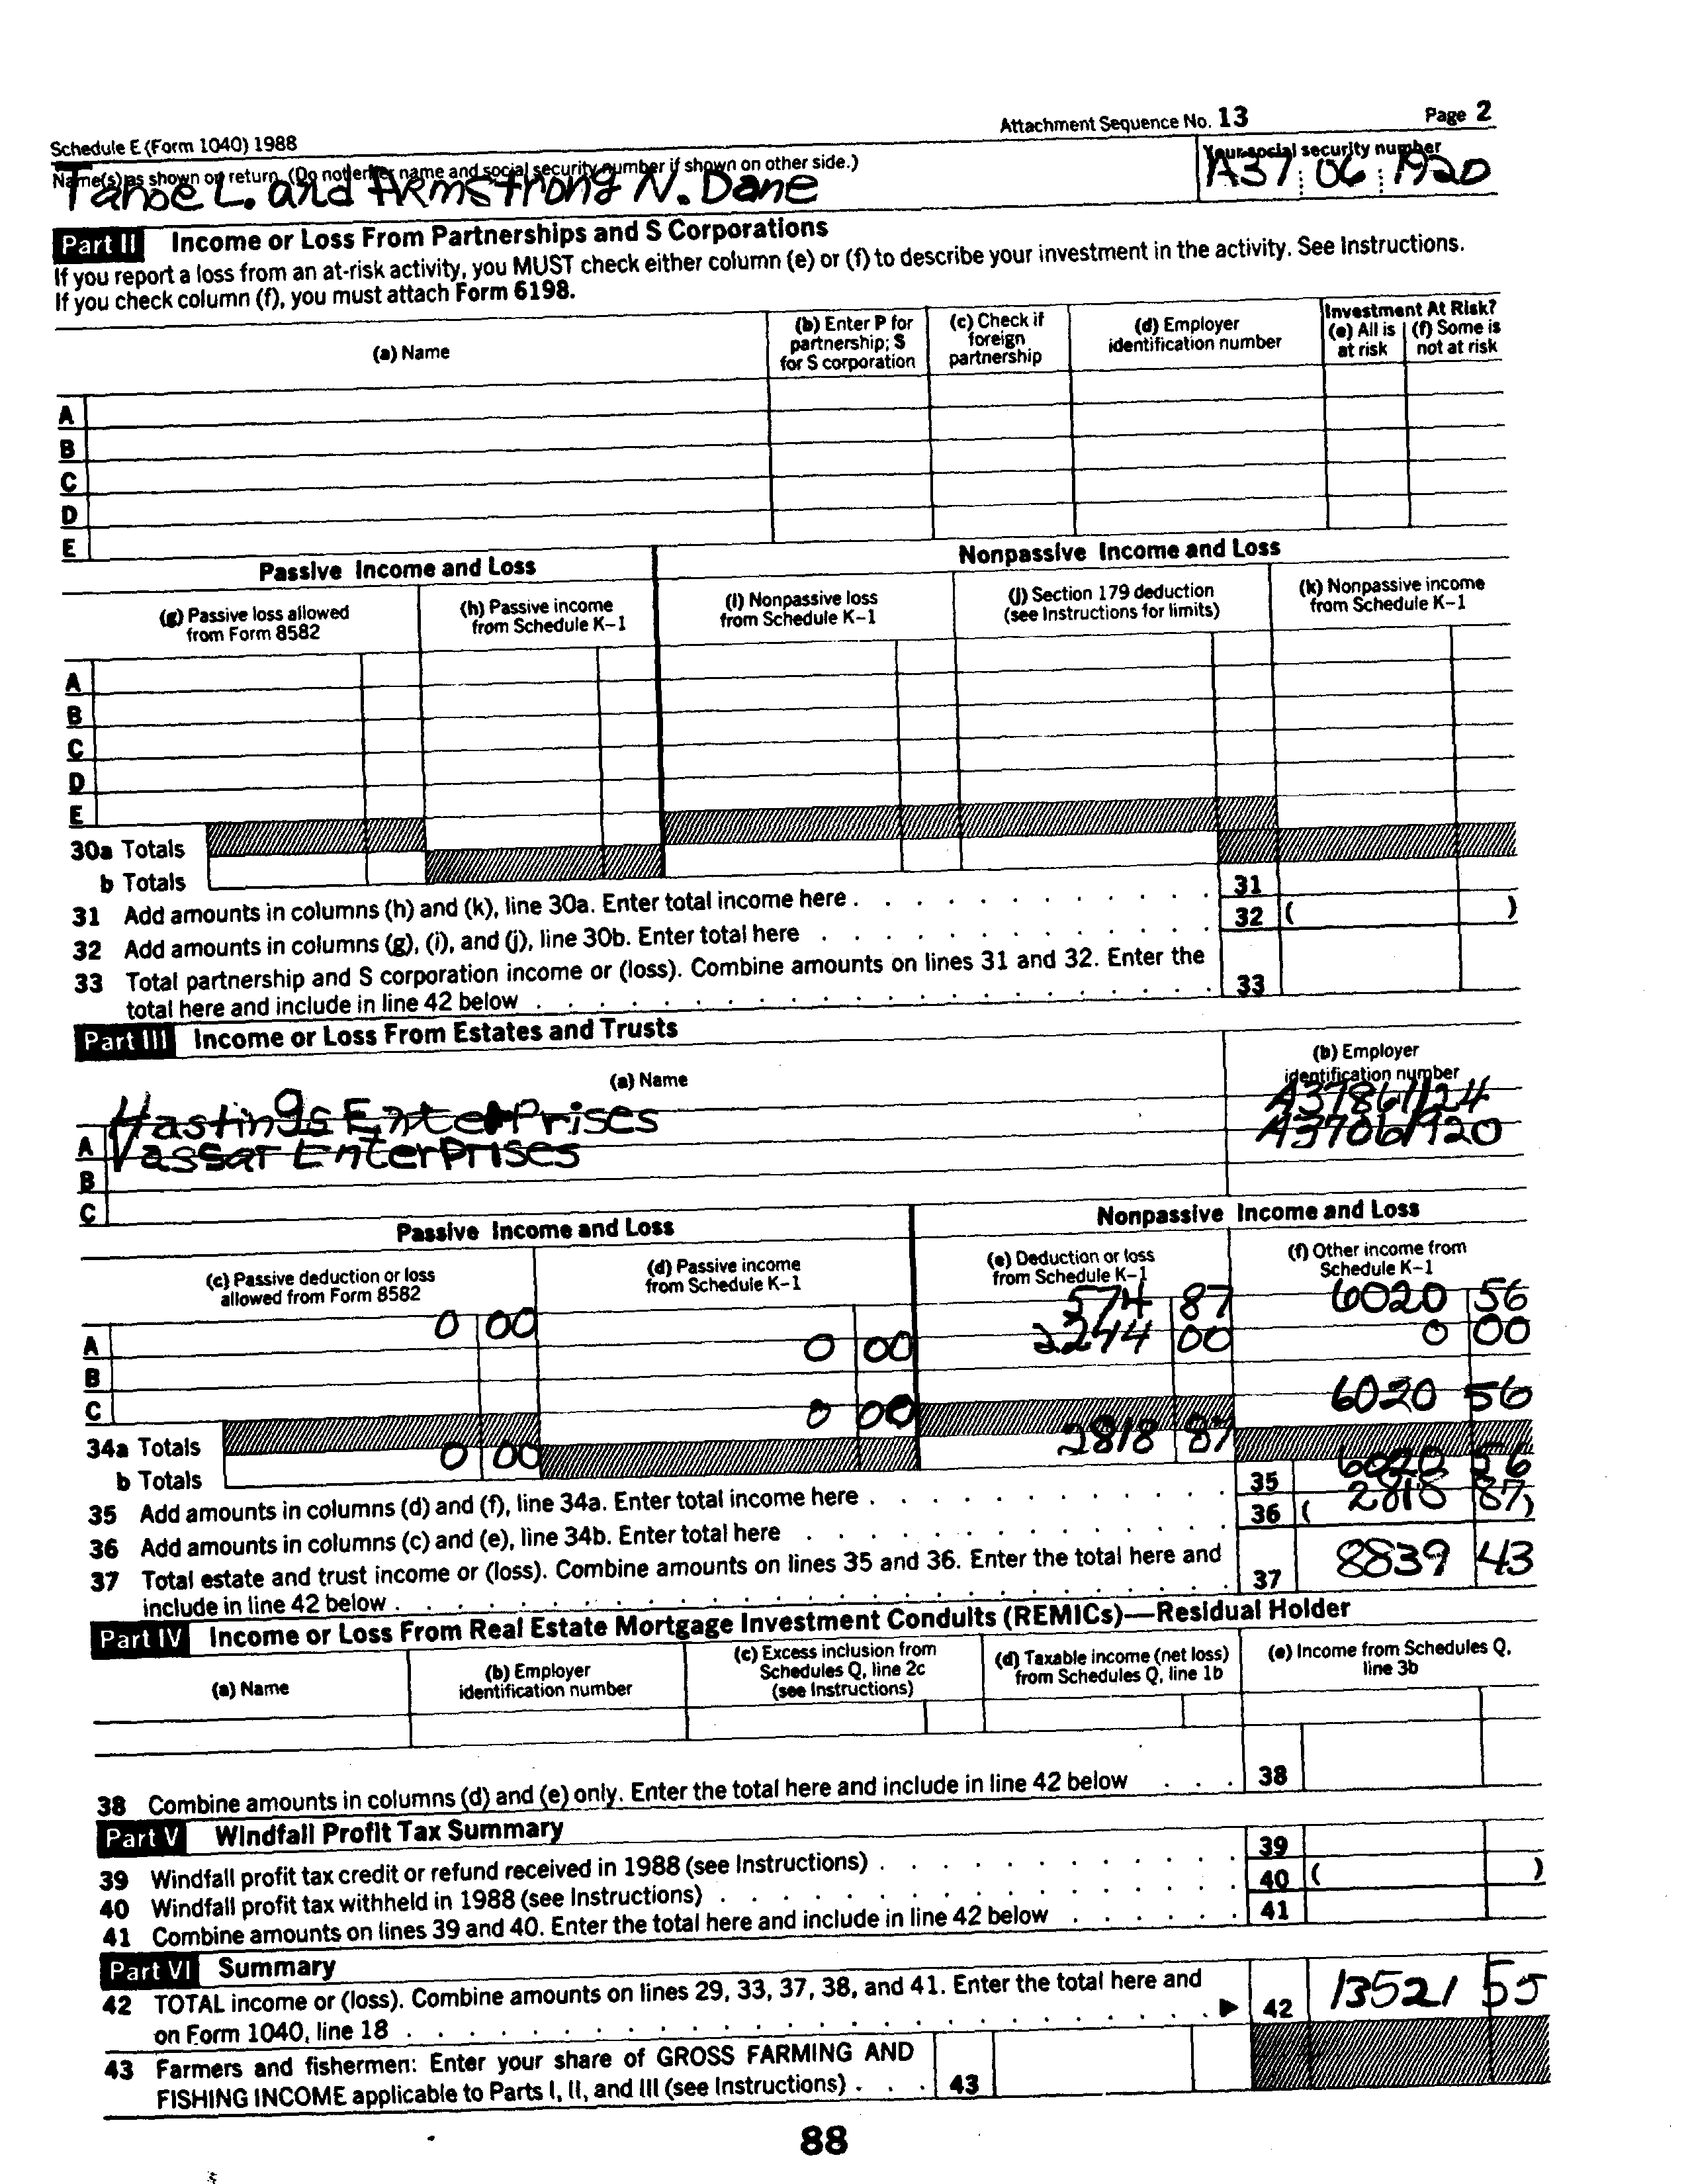 Schedule E (Form 1040) 1988 Attachment Sequence No. 13 Page 2
Name(s) as shown on return. (Do not enter name and social security number if shown on other side.) Your social security number
Tahoe L. and Armstrong N. Dane A37 06 1920
Part II Income or Loss From Partnerships and S Corporations
If you report a loss from an at-risk activity, you MUST check either column (e) or (f) to describe your investment in the activity. See Instructions.
If you check column (f), you must attach Form 6198.
(a) Name (b) Enter P for partnership; S for S corporation (c) Check if foreign partnership (d) Employer identification number Investment At Risk? (e) All is at risk (f) Some is not at risk
A
B
C
D
E
Passive Income and Loss Nonpassive Income and Loss
(g) Passive loss allowed from Form 8582 (h) Passive income from Schedule K-1 (i) Nonpassive loss from Schedule K-1 (j) Section 179 deduction (see Instructions for limits) (k) Nonpassive income from Schedule K-1
A
B
C
D
E
30a Totals
b Totals
31 Add amounts in columns (h) and (k), line 30a. Enter total income here . 31
32 Add amounts in columns (g), (i), and (j), line 30b. Enter total here . 32 ( )
33 Total partnership and S corporation income or (loss). Combine amounts on lines 31 and 32. Enter the
total here and include in line 42 below . 33
Part III Income or Loss From Estates and Trusts
(a) Name (b) Employer identification number
A Hastings Enterprises A37861124
B Vassar Enterprises A37061920
C
Passive Income and Loss Nonpassive Income and Loss
(c) Passive deduction or loss allowed from Form 8582 (d) Passive income from Schedule K-1 (e) Deduction or loss from Schedule K-1 (f) Other income from Schedule K-1
A 0 00 0 00 574 87 6020 56
B 2244 00 0 00
C
34a Totals 0 00 6020 56
b Totals 0 00 2818 87
35 Add amounts in columns (d) and (f), line 34a. Enter total income here . 35 6020 56
36 Add amounts in columns (c) and (e), line 34b. Enter total here . 36 ( 2818 87)
37 Total estate and trust income or (loss). Combine amounts on lines 35 and 36. Enter the total here and
include in line 42 below . 37 8839 43
Part IV Income or Loss From Real Estate Mortgage Investment Conduits (REMICs)—Residual Holder
(a) Name (b) Employer identification number (c) Excess inclusion from Schedules Q, line 2c (see Instructions) (d) Taxable income (net loss) from Schedules Q, line 1b (e) Income from Schedules Q, line 3b
38 Combine amounts in columns (d) and (e) only. Enter the total here and include in line 42 below . 38
Part V Windfall Profit Tax Summary
39 Windfall profit tax credit or refund received in 1988 (see Instructions) . 39
40 Windfall profit tax withheld in 1988 (see Instructions) . 40 ( )
41 Combine amounts on lines 39 and 40. Enter the total here and include in line 42 below . 41
Part VI Summary
42 TOTAL income or (loss). Combine amounts on lines 29, 33, 37, 38, and 41. Enter the total here and
on Form 1040, line 18 . ▶ 42 13521 55
43 Farmers and fishermen: Enter your share of GROSS FARMING AND
FISHING INCOME applicable to Parts I, II, and III (see Instructions) . 43
88